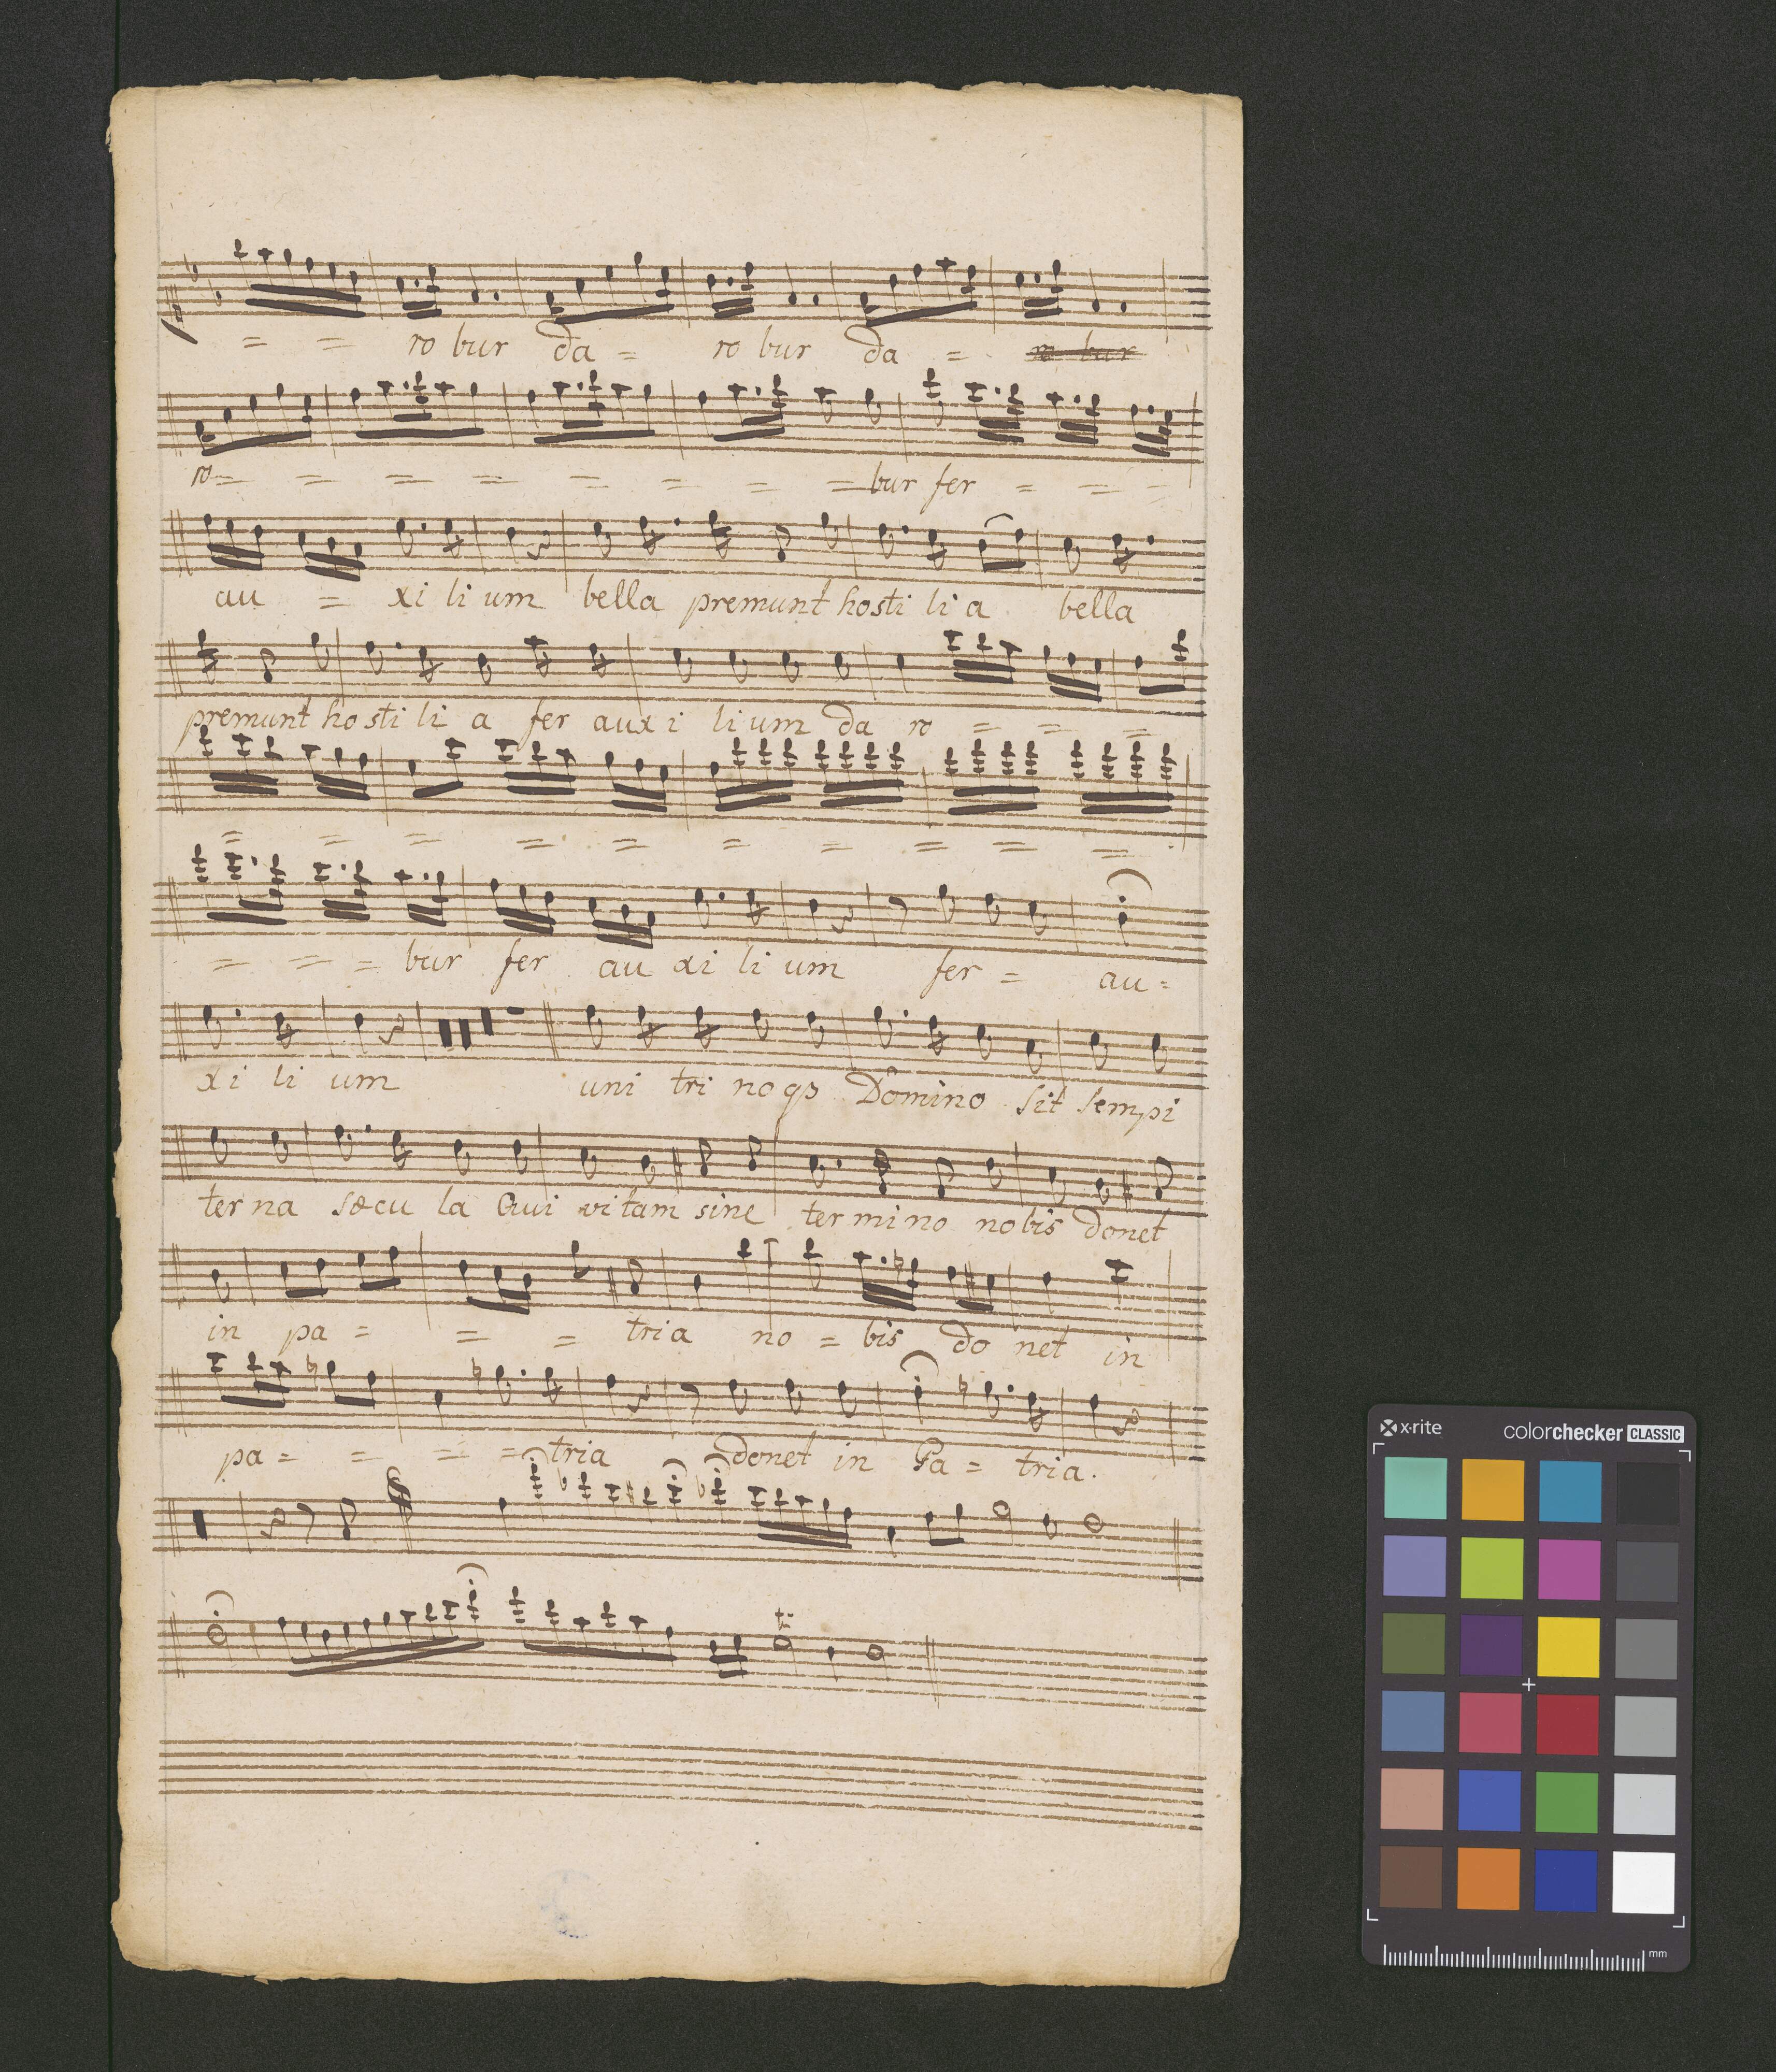 = = ro bur da = ro bur da = ro bur
ro = = = = = = = = bur fer = = =
au = xi li um bella premunt hosti li a bella
premunt ho sti li a fer auxi li um da ro = = =
= = = = = = = = = =
= = = bur fer au xi li um fer = au =
xi li um uni tri no qꝫ Domino sit sempi
ter na sæcu la Qui vi tam sine ter mi no nobis donet
in pa = = = tria no = bis do net in
pa = = = = tria donet in Pa = tria.
x·rite colorchecker CLASSIC
mm